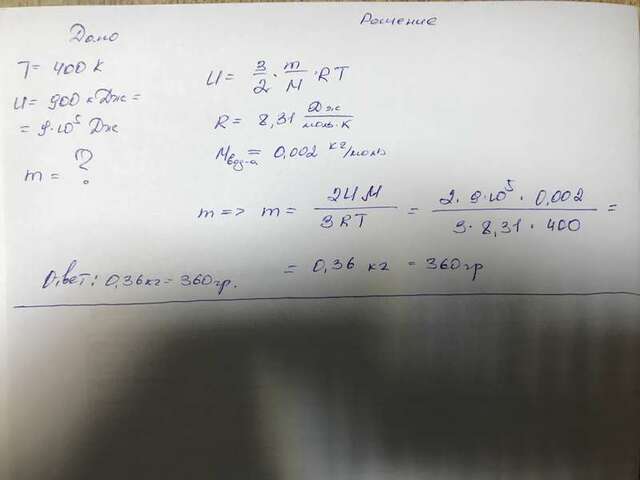 Дано
Решение
T = 400 К
U = 900 кДж =
= 9·10⁵ Дж
m = ?
U = 3/2 · m/M · RT
R = 8,31 Дж/моль·К
Mвод-а = 0,002 кг/моль
m => m = 2UM/3RT = 2·9·10⁵·0,002/3·8,31·400 =
= 0,36 кг = 360гр
Ответ: 0,36кг = 360гр.